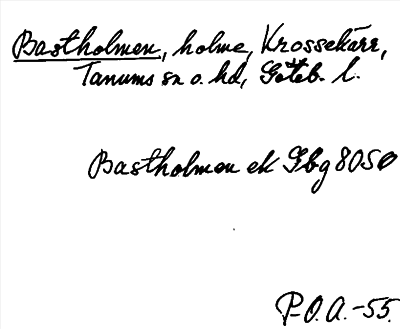 Bastholmen, holme, Krossekärr,
Tanums sn o. hd, Göteb. l.
Bastholmen ek Gbg 8050
P.O.A. -55.